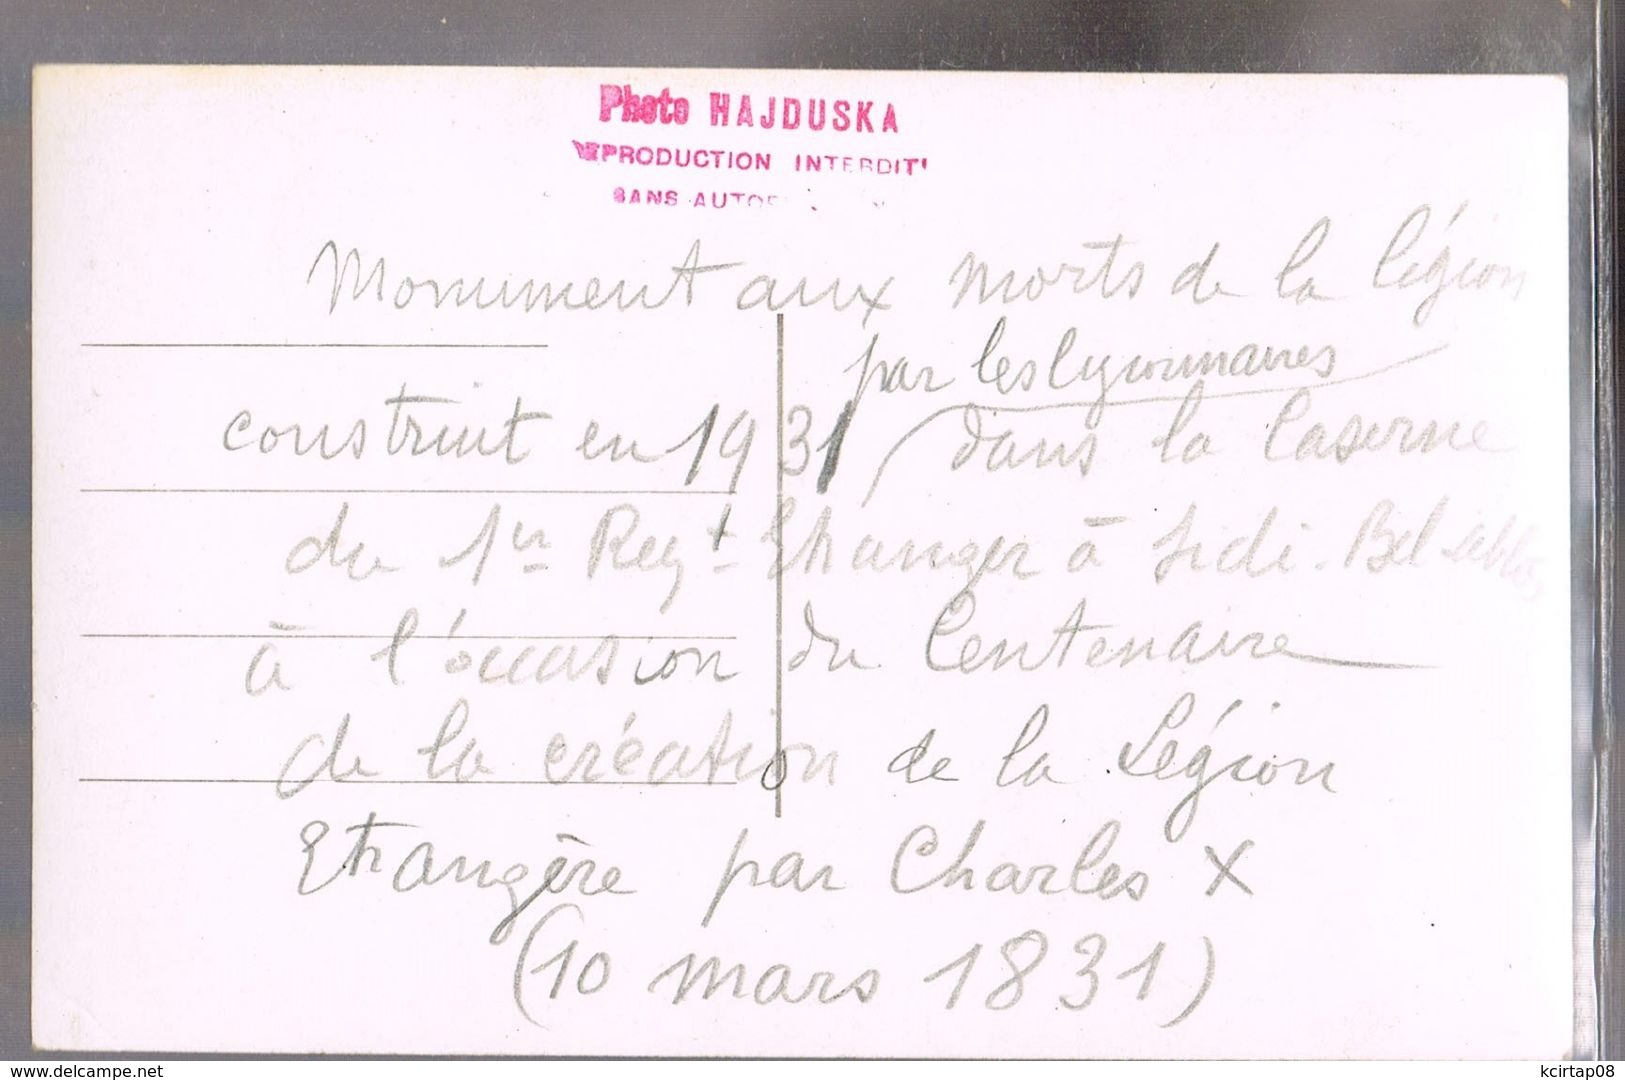 Photo HAJDUSKA
REPRODUCTION INTERDIT
SANS
Monument aux morts de la Légion
par les légionnaires
construit en 1931 dans la Caserne
du 1er Regt Etranger à Sidi-Bel
à l'occasion du Centenaire
de la création de la Légion
Etrangère par Charles X
(10 mars 1831)
www.delcampe.net
kcirtap08